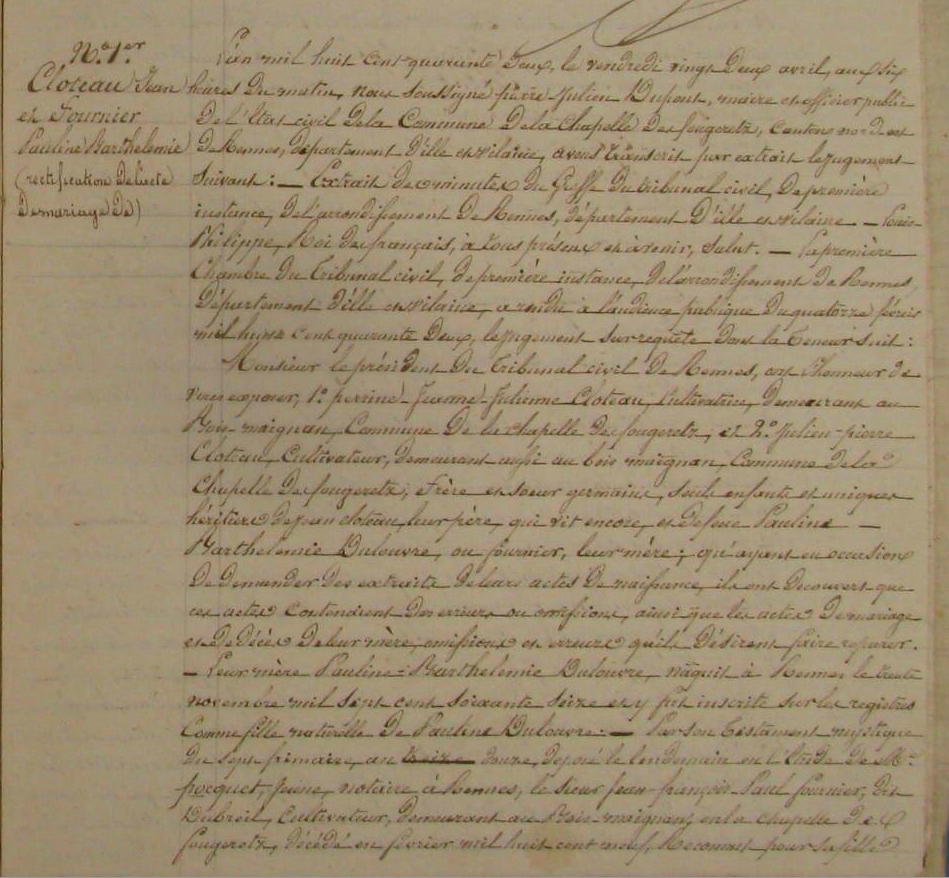 N.º 1.er
Cloteau Jean
et Fournier
Pauline Barthelemie
(rectification de l'acte
de mariage de)
L'an mil huit cent quarante deux, le vendredi vingt deux avril, aux six
heures du matin, nous soussigné pierre Julien Dupont, maire et officier public
de l'état civil de la Commune de la Chapelle des fougeretz, canton nord est
de Rennes, département d'ille et vilaine, avons transcrit par extrait le jugement
suivant : — Extrait des minutes du Greffe du tribunal civil, de première
instance, de l'arrondissement de Rennes, département d'ille et vilaine. — Louis-
Philippe, Roi des français, à tous présens et à venir, Salut. — La première
Chambre du tribunal civil, de première instance, de l'arrondissement de Rennes,
département d'ille et vilaine, a rendu à l'audience publique du quatorze février
mil huit cent quarante deux, le jugement sur requête dont la teneur suit :
Monsieur le président du tribunal civil de Rennes, ont l'honneur de
vous exposer, 1º perrine-Jeanne-Julienne Cloteau, Cultivatrice, demeurant au
Bois-maignan, Commune de la chapelle des fougeretz, et 2º Julien-pierre
Cloteau, Cultivateur, demeurant aussi au bois maignan, Commune de la
Chapelle des fougeretz, frère et soeur germains, seuls enfants et uniques
héritiers de jean cloteau, leur père, qui vit encore, et de feue Pauline —
Barthelemie Dulouvre, ou fournier, leur mère ; qu'ayant eu occasion
de demander des extraits de leurs actes de naissance, ils ont découvert que
ces actes contenaient des erreurs ou omissions, ainsi que les actes de mariage
et de décès de leur mère, omissions et erreurs qu'ils désirent faire réparer.
— Leur mère Pauline-Barthelemie Dulouvre, naquit à Rennes le trente
novembre mil sept cent soixante seize et y fut inscrite sur les registres
Comme fille naturelle de Pauline Dulouvre. — Par son testament mystique
du sept frimaire, an treize douze, déposé le lendemain en l'Etude de Mr
pocquet, jeune, notaire à Rennes, le sieur Jean-françois-Paul fournier, dit
Dubreil, Cultivateur, demeurant au Bois-maignan, en la chapelle des
fougeretz, décédé en février mil huit cent neuf, Reconnut pour sa fille